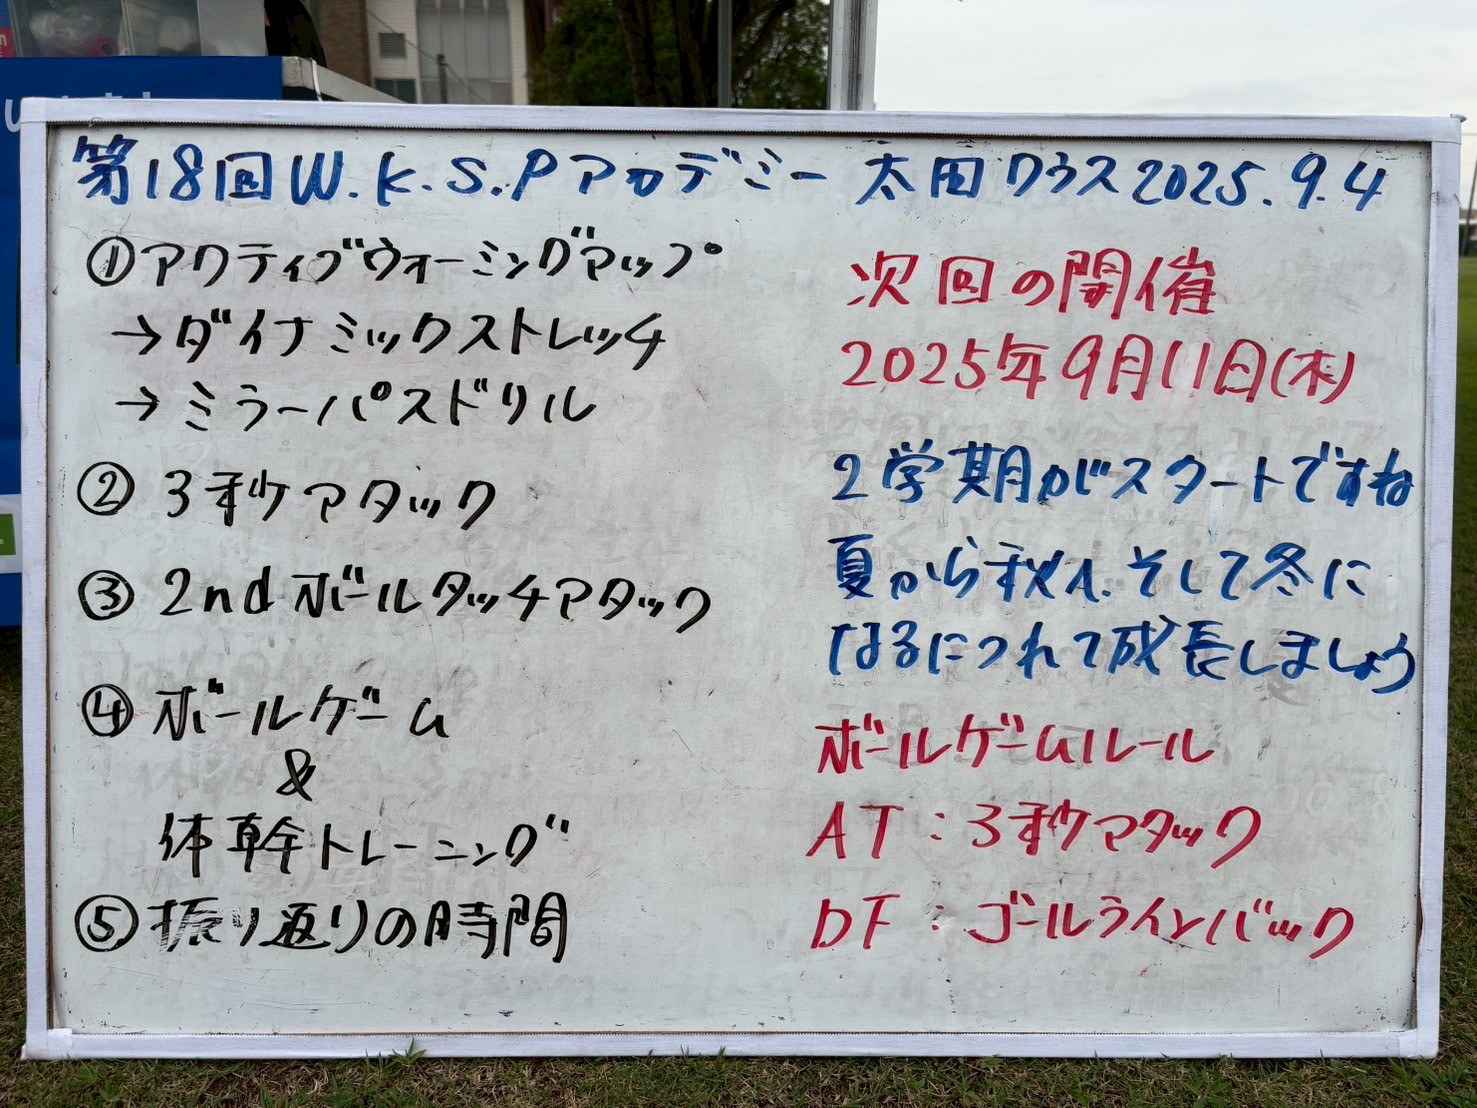 第18回W.K.S.Pアカデミー 太田クラス2025.9.4
①アクティブウォーミングマップ
→ダイナミックストレッチ
→ミラーパスドリル
②3秒アタック
③2ndボールタッチアタック
④ボールゲーム
&
体幹トレーニング
⑤振り返りの時間
次回の開催
2025年9月11日(木)
2学期がスタートですね
夏から秋へ.そして冬に
なるにつれて成長しましょう
ボールゲームルール
AT:3秒アタック
DF:ゴールラインバック